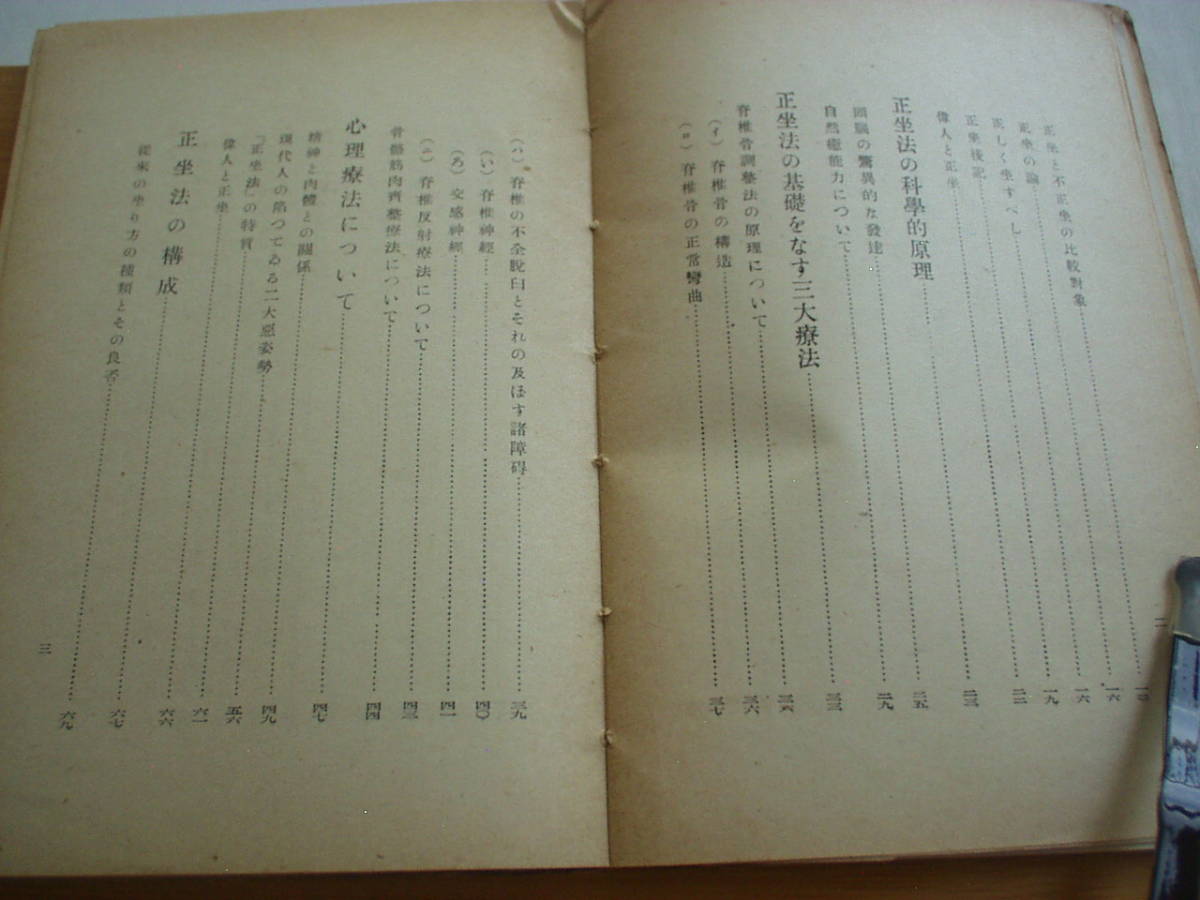 正坐と不正坐の比較對象
正坐の論……一六
正しく坐すべし……一六
正坐後記……一九
偉人と正坐……二二
正坐法の科學的原理……二三
頭腦の驚異的な發達……二五
自然癒能力について……二九
正坐法の基礎をなす三大療法……三三
脊椎骨調整法の原理について……三六
(イ) 脊椎骨の構造……三六
(ロ) 脊椎骨の正常彎曲……三七
二
(ハ) 脊椎の不全脫臼とそれの及ぼす諸障碍……三九
(い) 脊椎神經……四〇
(ろ) 交感神經……四一
(ニ) 脊椎反射療法について……四三
骨骼筋肉齊整療法について……四四
心理療法について……四七
精神と肉體との關係……四九
現代人の陷つてゐる二大惡姿勢……五六
「正坐法」の特質……六一
偉人と正坐……六六
正坐法の構成……六七
從來の坐り方の種類とその良否……六九
三